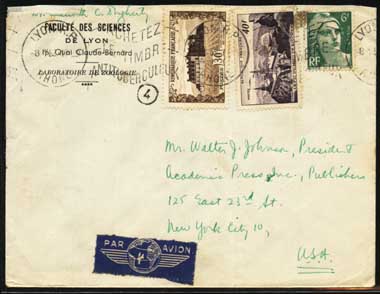 FACULTÉ DES SCIENCES
DE LYON
Quai Claude-Bernard
LABORATOIRE DE ZOOLOGIE
LYON
RHONE
ACHETEZ
TIMBRE
ANTITUBERCULEUX
30f
40f
6F
RF
4
Mr. Walter J. Johnson, President
Academic Press, Inc., Publishers
125 East 23rd St.
New York City 10,
U.S.A.
PAR AVION